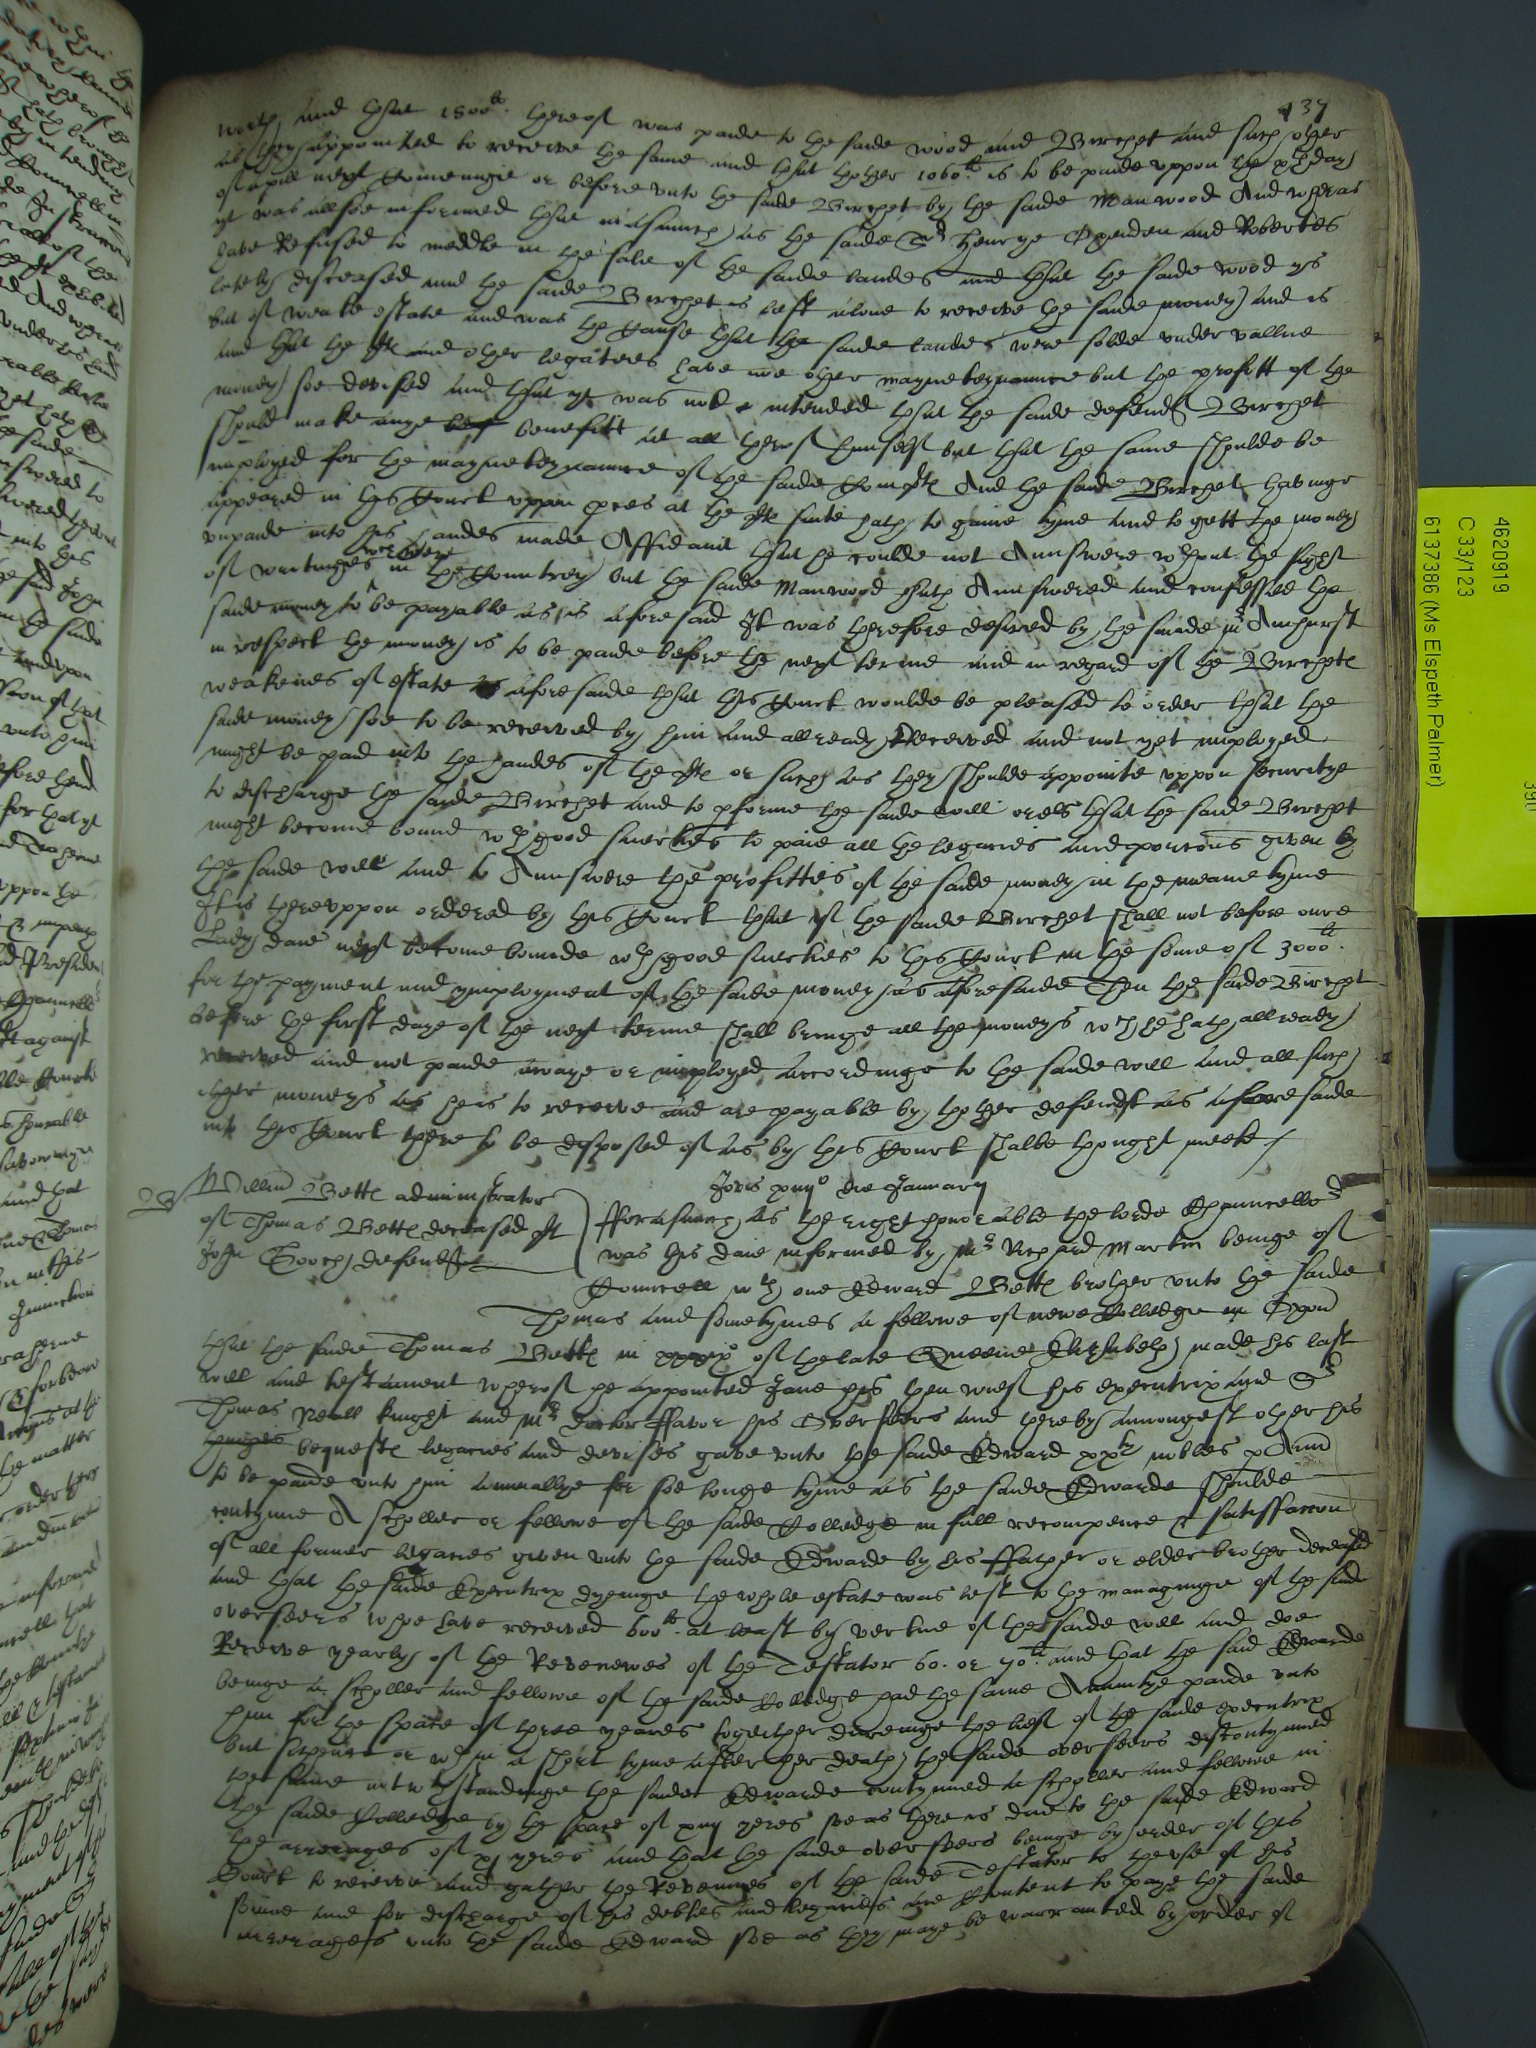 137
worth and that 1500li. thereof was paide to the saide wood and Birchet and such other
as they appointed to receive the same and that thother 1060li is to be paide uppon the xth day
of aprill next cominge or before unto the saide Birchet by the saide Manwood And wheras
yt was allsoe informed that in asmuch as the saide Sr Henrye Oxenden and Robertes
have Refused to meddle in the sale of the saide landes and that the saide wood ys
lately disceased and the saide Birchet is left alone to receive the saide money and is
but of weake estate and was the cause that the saide landes were solde under vallue
and that the plt and other legatees have noe other mayneteynaunce but the profitt of the
money soe devised and that yt was not intended that the saide defendt Birchet
should make anye benefitt at all therof himself but that the same shoulde be
imployed for the mayneteynaunce of the saide Complts And the saide Birchet havinge
appeared in this Court uppon proces at the plts suite hath to gaine tyme and to gett the money
unpaide into his handes made Affidavit that he coulde not Aunswere without the sight
of writinges wch were in the Countrey but the saide Manwood hath Aunswered and confessed the
saide money to be payable as is aforesaid It was therefore desired by the saide mr Amhurst
in respect the money is to be paide before the next terme and in regard of the Birchets
weakenes of estate as aforesaide that this Court woulde be pleased to order that the
saide money soe to be received by him and allready Received and not yet imployed
might be paid into the handes of the plts or such as they shoulde appointe uppon securitye
to discharge the saide Birchet and to pforme the saide will or els that the said Birchet
might become bound wth good suerties to paie all the legacies and porcons given by
the saide will and to Aunswere the profittes of the saide money in the meane tyme
It is thereuppon ordered by this Court that if the saide Birchet shall not before oure
Lady daie next become bounde wth good suerties to this Court in the some of 3000li.
for the payment and ymployment of the saide money as aforesaide Then the saide Birchet
before the first daye of the next terme shall bringe all the moneys wch he hath allready
received and not paide awaye or imployed accordinge to the saide will and all such
other moneys as he is to receive and are payable by thother defendt as aforesaide
into this Court there to be disposed of as by this Court shalbe thought meete /
Jovis xiiijo die January
B
Willm Betts administrator
of Thomas Betts deceased plt
John Gooch defendt
Forasmuch as the right honorable the lorde Chauncellor
was this daie informed by mr Richard Martin beinge of
Councell wth one Edward Betts brother unto the saide
Thomas and sometymes a fellowe of newe Colledge in Oxon
that the saide Thomas Betts in of the late Queene Elizabeth made his last
will and testament wherof he appointed Jane his then wief his executrix and Sr
Thomas Neall knight and mr doctor Favor his Overseers and thereby amongest other his
thinges bequests legacies and devises gave unto the saide Edward xxty nobles p Ann
to be paide unto him annuallye for soe longe tyme as the saide Edwarde shoulde
contynue A scholler or fellowe of the saide Colledge in full recompence & satisfaccon
of all former legacies given unto the saide Edwarde by his Father or elder brother deceased
and that the saide Executrix dyeinge the whole estate was left to the managinge of the saide
overseers whoe have received 600li. at least by vertue of the saide will and doe
Receive yearly of the Revenewes of the Testator 60. or 70li. and that the said Edwarde
beinge a scholler and fellowe of the saide Colledge had the same Annuitye paide unto
him for the space of three yeares together dureinge the lief of the saide executrix
but sithence or wthin a short tyme after her death the saide overseers discontynued
the same notwthstandinge the saide Edwarde contynued a scholler and fellowe in
the saide Colledge by the space of xiiij yeres soe as there is due to the saide Edward
the arrerages of xj yeres and that the saide overseers beinge by order of this
Court to receive and gather the Revenues of the saide Testator to theuse of his
sonne and for discharge of his debtes and legacies are Content to paye the saide
arrerages unto the saide Edward soe as they maye be warranted by order of
4620919
C 33/123
6137386 (Ms Elspeth Palmer)
390